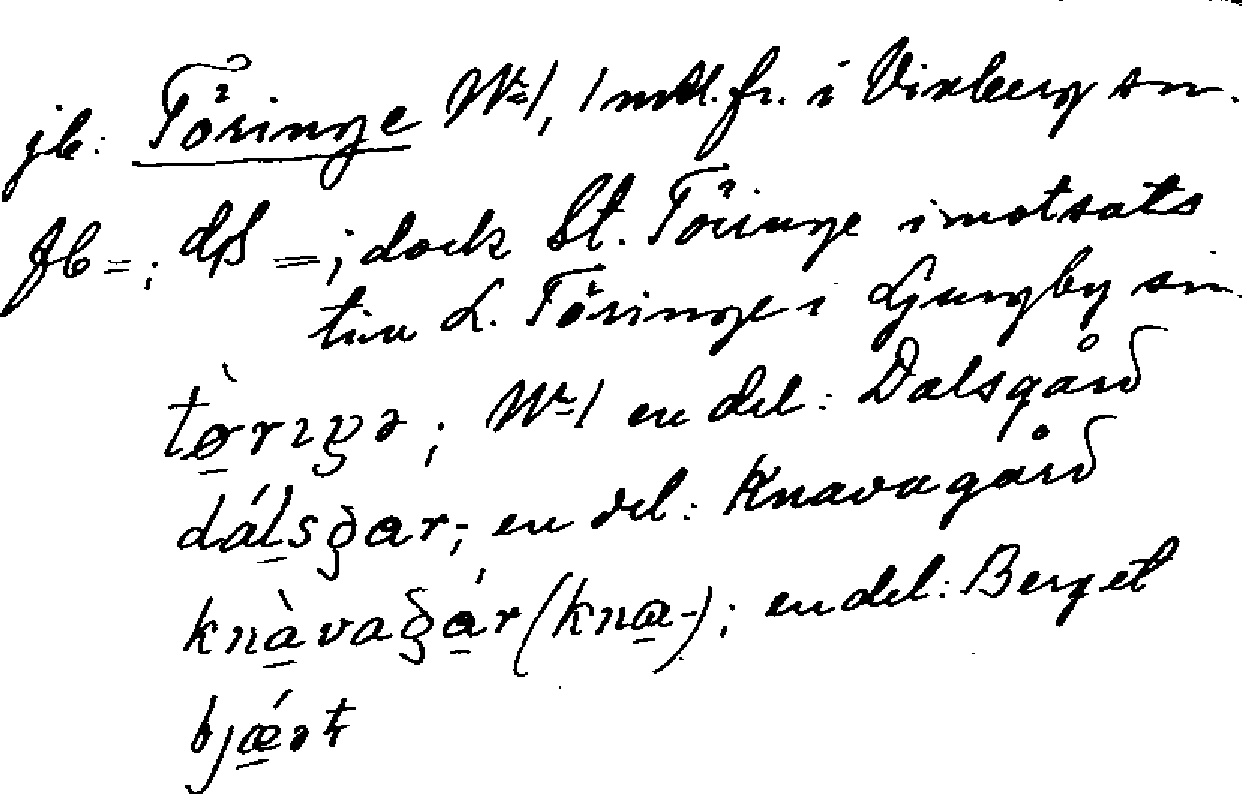 jb: Töringe № 1, 1 mtl. fr. i Vinberg sn.
fb =; dß =; dock St. Töringe i motsats
till L. Töringe i Ljungby sn.
tø̀rıŋə; № 1 en del: Dalsgård
dálsgar; en del: Knavagård
knàvagár (kna-); en del: Berget
bjǽrt